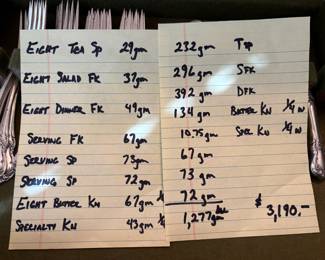 Eight Tea Sp 29gm
Eight Salad Fk 37gm
Eight Dinner Fk 49gm
Serving Fk 67gm
Serving Sp 73gm
Serving Sp 72gm
Eight Butter Kn 67gm
Specialty Kn 43gm
232gm Tsp
296gm SFK
392gm DFK
134gm Butter Kn 1/4 W
10.75gm Spec Kn 1/4 W
67gm
73gm
72gm
1,277gm
$3,190.-